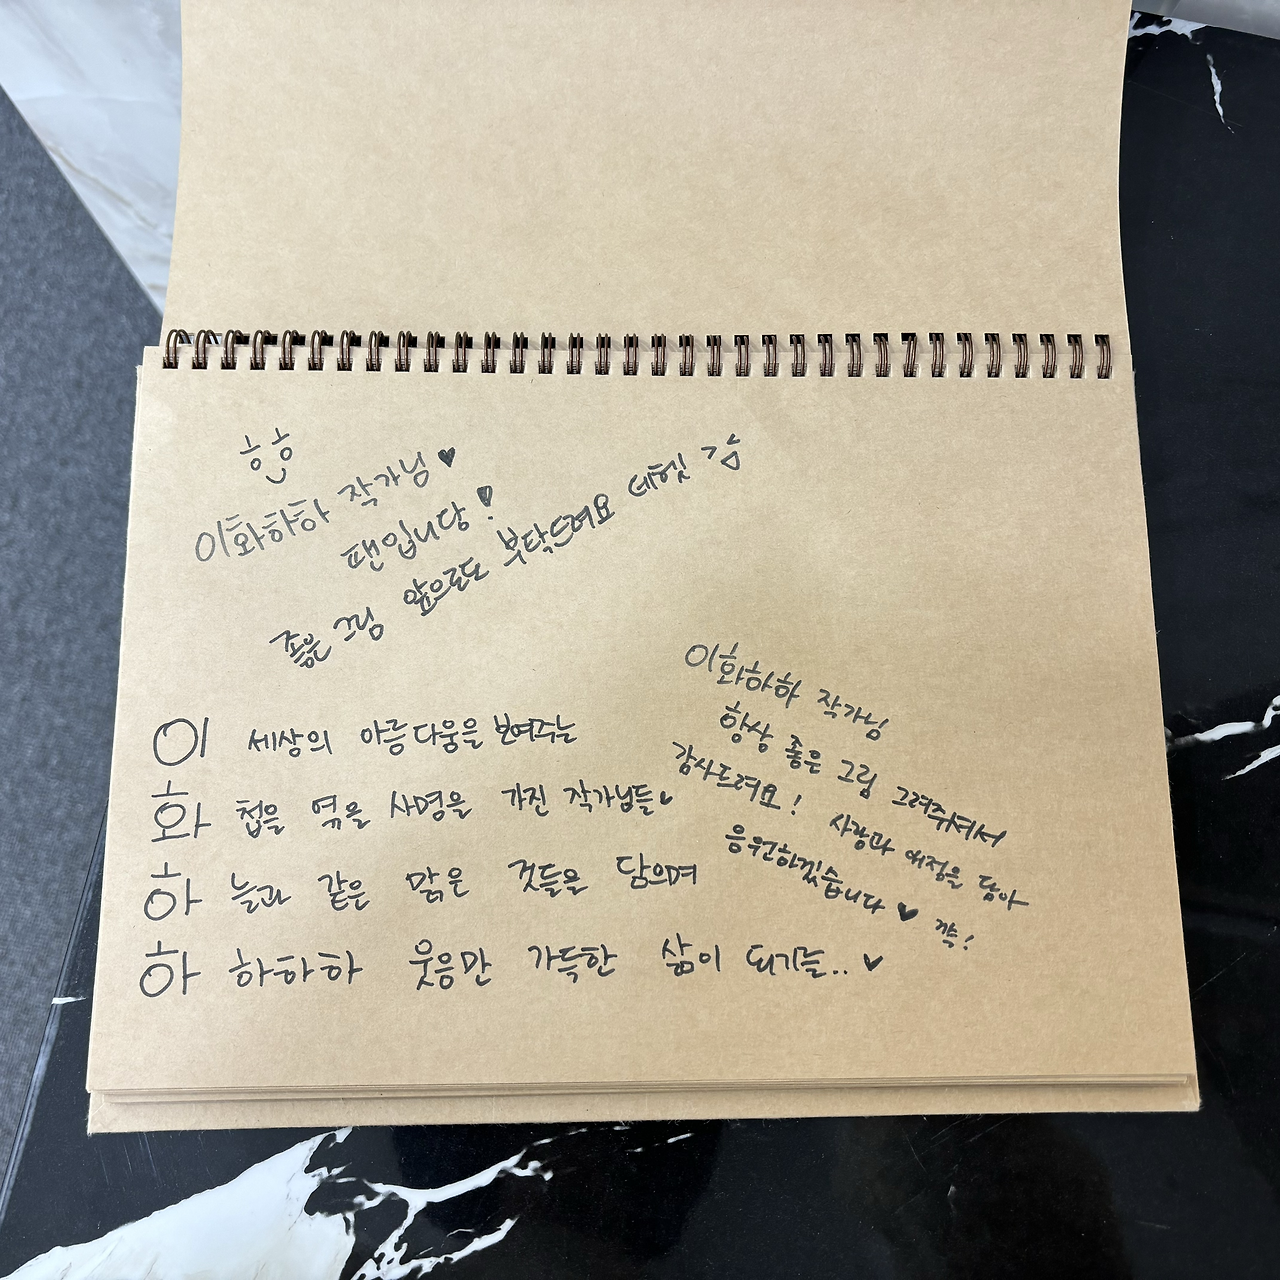 ㅎㅎ
이화하하 작가님♥
팬입니당!
좋은 그림 앞으로도 부탁드려요 데헷
이 세상의 아름다움을 보여주는
화 첩을 엮을 사명을 가진 작가님들♥
하 늘과 같은 맑은 것들을 담으며
하 하하하 웃음만 가득한 삶이 되기를..♥
이화하하 작가님
항상 좋은 그림 그려주셔서
감사드려요! 사랑과 애정을 담아
응원하겠습니다♥ 꺅!